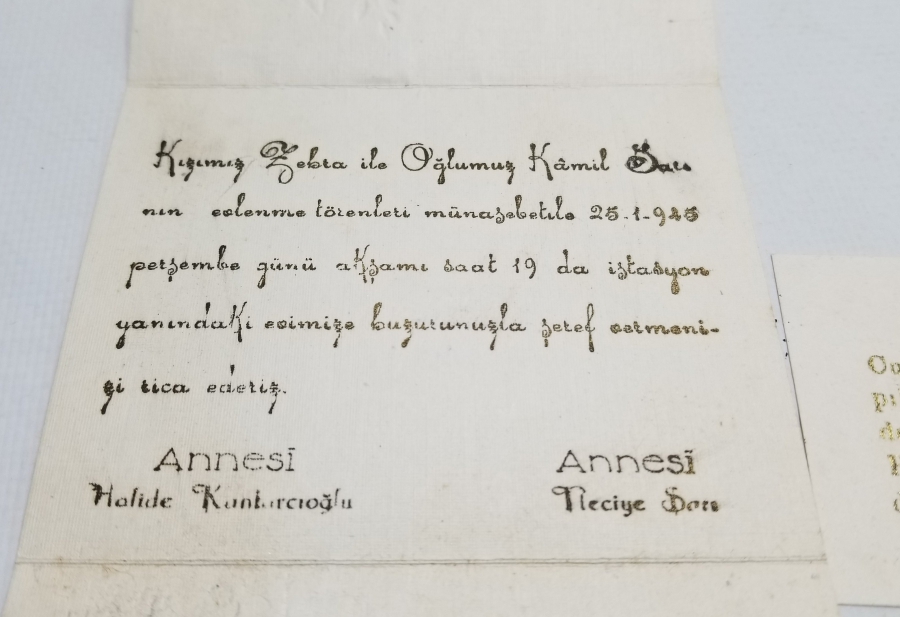 Kızımız Zehra ile Oğlumuz Kâmil
nın evlenme törenleri münasebetile 25-1-945
perşembe günü akşamı saat 19 da istasyon
yanındaki evimize huzurunuzla şeref vermeni-
zi rica ederiz.
Annesi
Annesi
Halide Kantarcıoğlu
Neciye